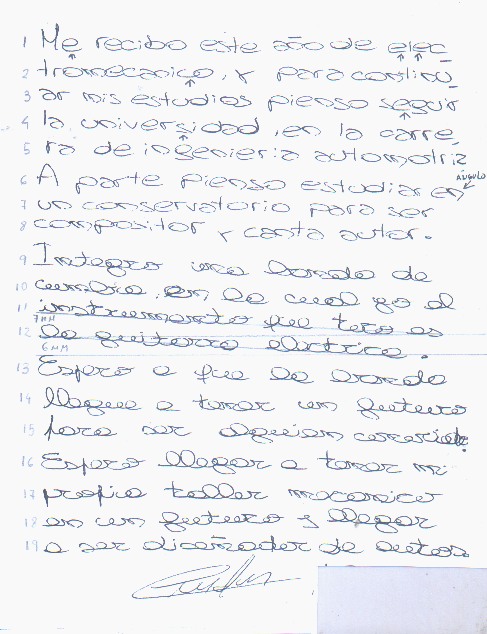 1 Me recibo este año de elec
2 tromecanico, y para continu
3 ar mis estudios pienso seguir
4 la universidad, en la carre
5 ra de ingenieria automotriz
6 A parte pienso estudiar en
ÁNGULO
7 un conservatorio para ser
8 compositor y canta autor.
9 Integro una banda de
10 cumbia, en la cual yo el
11 instrumento que toco es
7 MM
12 la guitarra electrica.
6 MM
13 Espero a que la banda
14 llegue a tener un futuro
15 para ser alguien conocido.
16 Espero llegar a tener mi
17 propio taller mecanico
18 en un futuro y llegar
19 a ser diseñador de autos